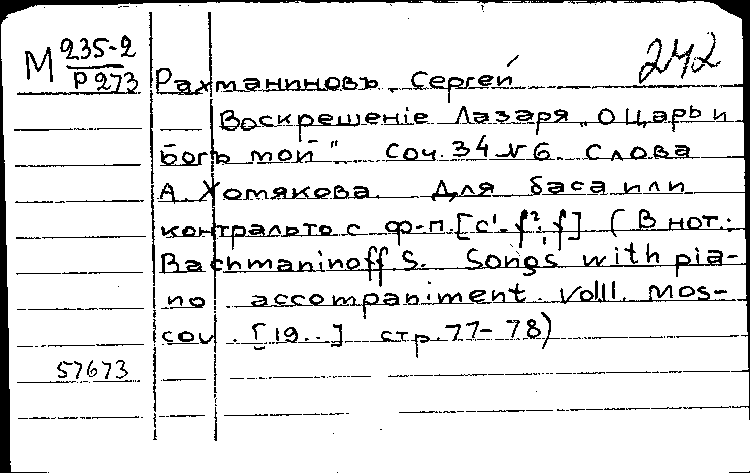 М 235-2
Р 273
242
Рахманиновъ, Сергей
Воскрешенiе Лазаря „О Царь и
Богъ мой". Соч. 34 № 6. Слова
А. Хомякова. Для баса или
контральто с ф-п. [c'-f²; f] (В нот.:
Rachmaninoff S. Songs with pia-
no accompaniment. Vol II. Mos-
cou. [19..] стр. 77-78)
57673